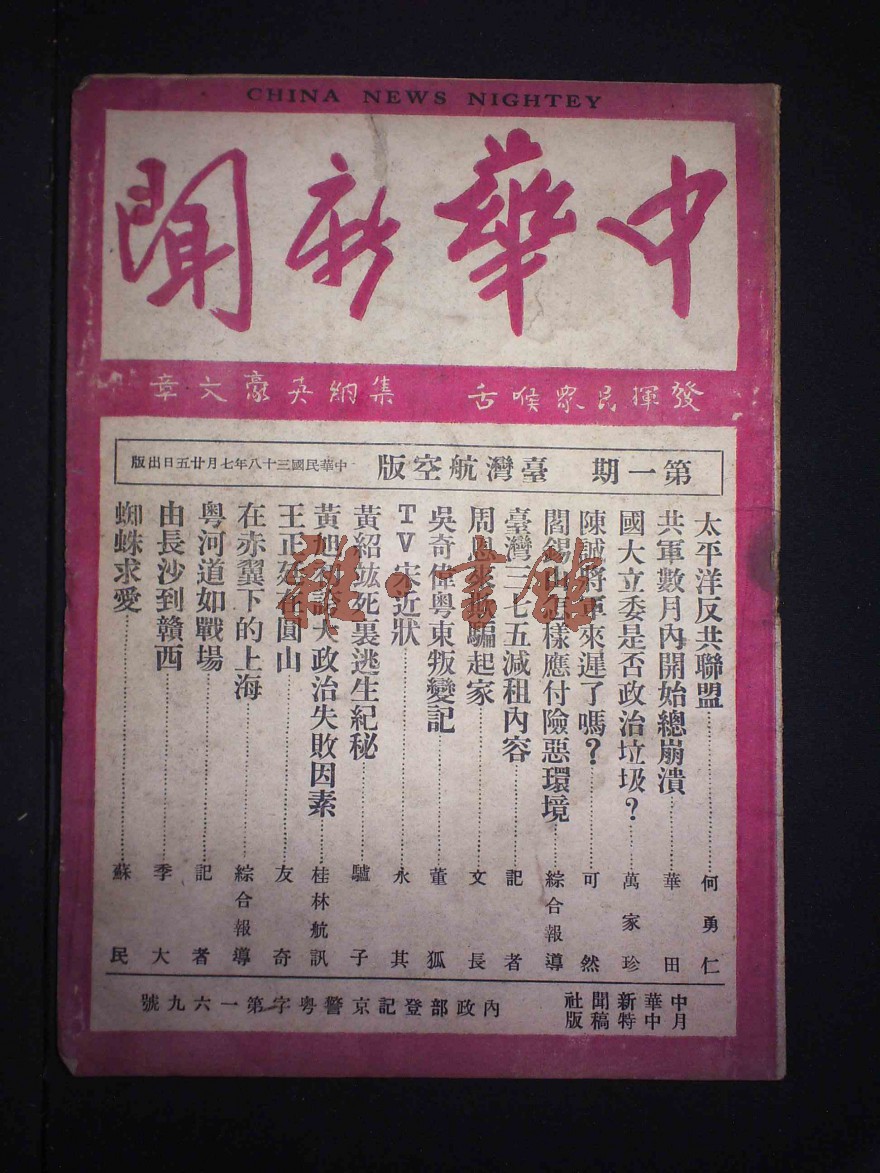 CHINA NEWS NIGHTEY
中華新聞
發揮民眾喉舌 集納英豪文章
第一期 臺灣航空版 中華民國三十八年七月廿五日出版
太平洋反共聯盟 何勇仁
共軍數月內開始總崩潰 華田
國大立委是否政治垃圾？ 萬家珍
陳誠將軍來遲了嗎？ 可然
閻錫山怎樣應付險惡環境 綜合報導
臺灣三七五減租內容 記者
周恩來拐騙起家 文長
吳奇偉粵東叛變記 董狐
TV宋近狀 永其
黃紹竑死裏逃生紀秘 驢子
黃旭初談大政治失敗因素 桂林航訊
王正廷在圓山 友奇
在赤翼下的上海 綜合報導
粵河道如戰場 記者
由長沙到贛西 季大
蜘蛛求愛 蘇民
中華新聞社
月中特稿版
內政部登記京警粵字第一六九號
雜·書館